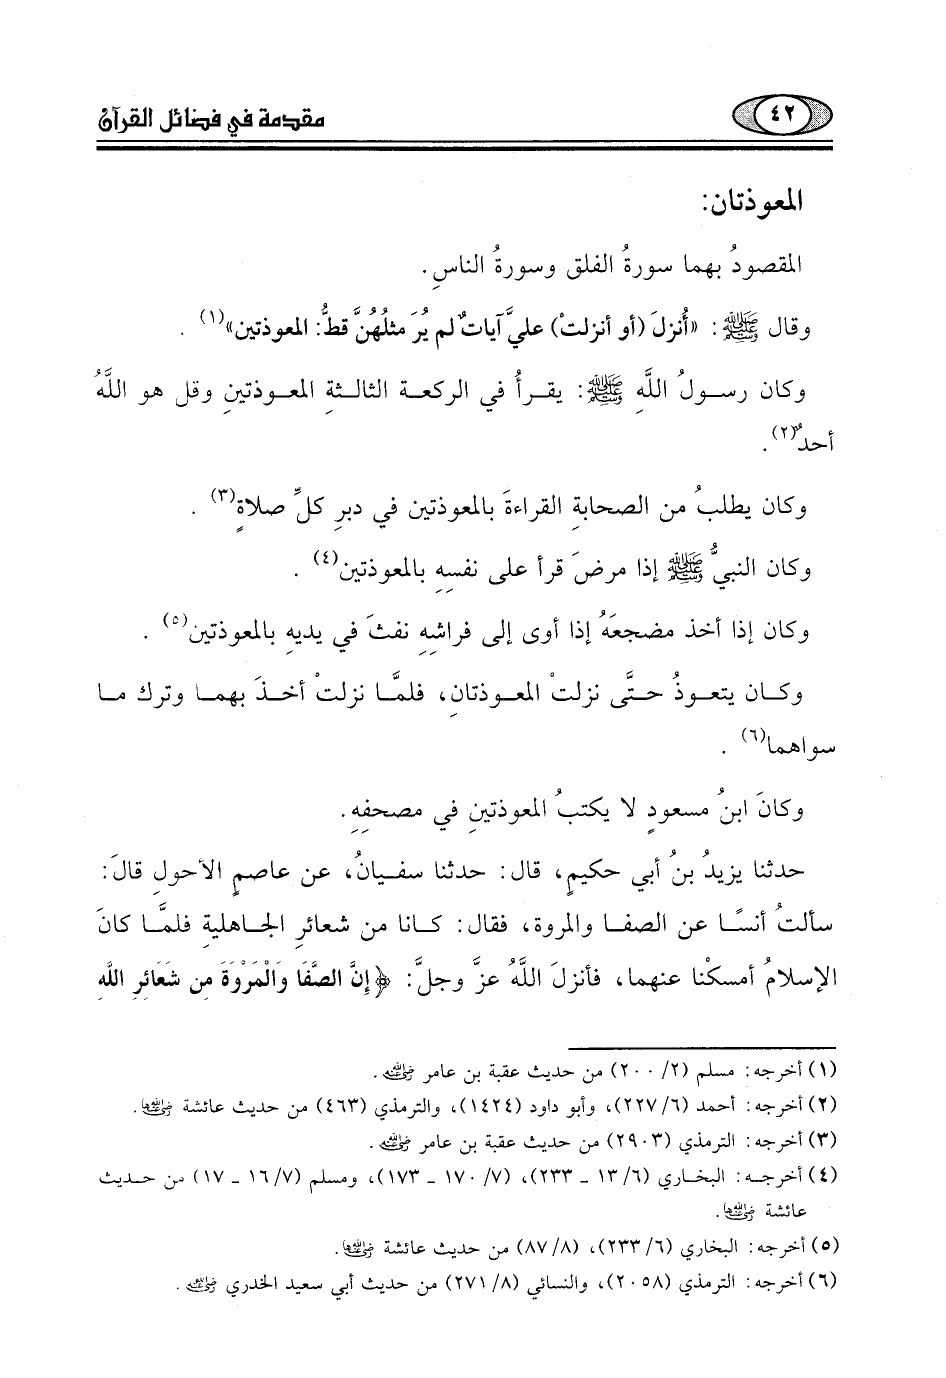 ٤٢
مقدمة في فضائل القرآن
المعوذتان:
المقصودُ بهما سورةُ الفلق وسورةُ الناسِ.
وقال ﷺ: «أُنزلَ (أو أنزلتْ) عليَّ آياتٌ لم يُرَ مثلُهُنَّ قطُّ: المعوذتين»(١) .
وكان رسـولُ اللَّهِ ﷺ: يقـرأُ في الركعـة الثالـثةِ المعـوذتينِ وقل هو اللَّهُ
أحدٌ(٢).
وكان يطلبُ من الصحابةِ القراءةَ بالمعوذتين في دبرِ كلِّ صلاةٍ(٣) .
وكان النبيُّ ﷺ إذا مرضَ قرأ على نفسِهِ بالمعوذتين(٤) .
وكان إذا أخذ مضجعَهُ إذا أوى إلى فراشِهِ نفثَ في يديهِ بالمعوذتين(٥) .
وكـان يتعـوذُ حـتَّى نزلـتْ المعـوذتانِ، فلمَّـا نزلـتْ أخـذَ بهمـا وترك مـا
سواهما(٦) .
وكانَ ابنُ مسعودٍ لا يكتبُ المعوذتينِ في مصحفِهِ.
حدثنا يزيدُ بنُ أبي حكيمٍ، قال: حدثنا سفـيانُ، عن عاصمٍ الأحولِ قالَ:
سألتُ أنسًا عن الصفـا والمروة، فقال: كـانا من شعائرِ الجـاهليةِ فلمَّـا كانَ
الإسلامُ أمسكْنا عنهما، فأنزلَ اللَّهُ عزَّ وجلَّ: ﴿إِنَّ الصَّفَا وَالْمَرْوَةَ مِن شَعَائِرِ اللَّه
(١) أخرجه: مسلم (٢/ ٢٠٠) من حديث عقبة بن عامر رضي الله عنه.
(٢) أخرجه: أحمد (٦/ ٢٢٧)، وأبو داود (١٤٢٤)، والترمذي (٤٦٣) من حديث عائشة رضي الله عنها.
(٣) أخرجه: الترمذي (٢٩٠٣) من حديث عقبة بن عامر رضي الله عنه.
(٤) أخرجـه: البخـاري (٦/ ١٣ ـ ٢٣٣)، (٧/ ١٧٠ ـ ١٧٣)، ومسلم (٧/ ١٦ ـ ١٧) من حـديث
عائشة رضي الله عنها.
(٥) أخرجه: البخاري (٦/ ٢٣٣)، (٨/ ٨٧) من حديث عائشة رضي الله عنها.
(٦) أخرجه: الترمذي (٢٠٥٨)، والنسائي (٨/ ٢٧١) من حديث أبي سعيد الخدري رضي الله عنه.